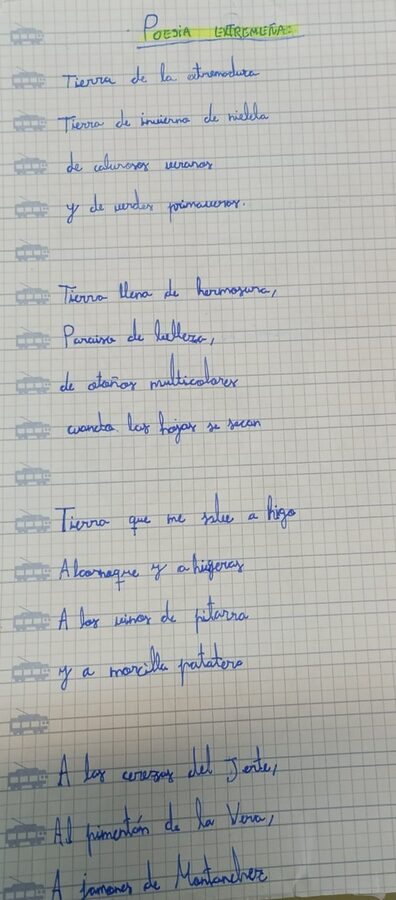 POESIA EXTREMEÑA:
Tierra de la extremadura
Tierra de invierno de niebla
de calurosos veranos
y de verdes primaveras.
Tierra llena de hermosura,
Paraiso de belleza,
de otoños multicolores
cuando las hojas se secan
Tierra que me sabe a higo
Alcornoque y a higeras
A los vinos de pitarra
y a morcilla patatera
A las cerezas del Jerte,
Al pimentón de la Vera,
A jamones de Montanchez